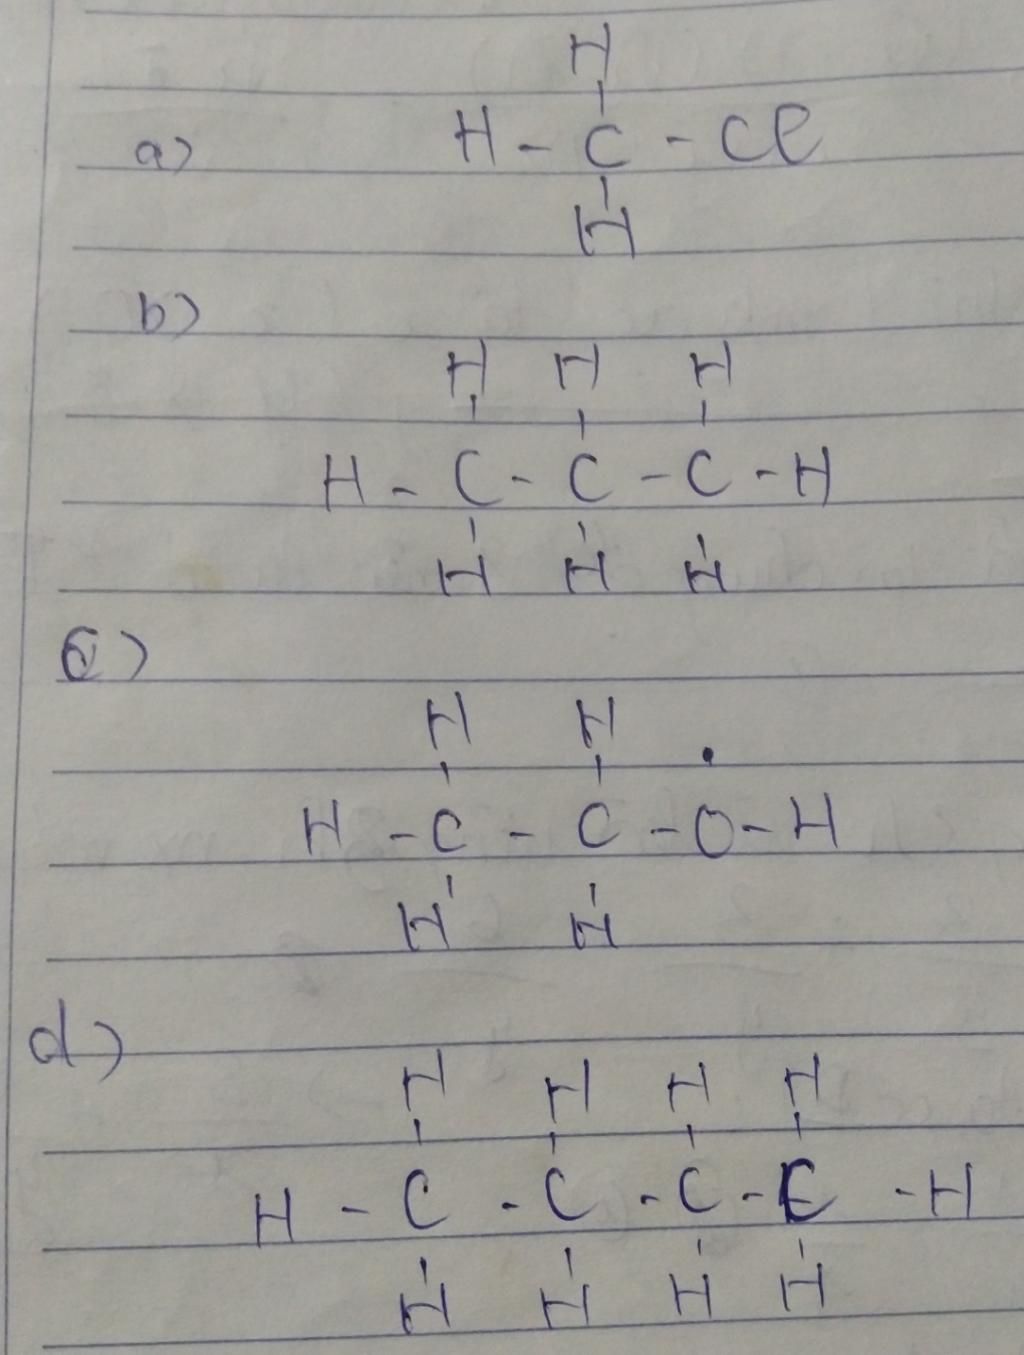 H
a) H - C - Cl
H
b)
H H H
H - C - C - C - H
H H H
c)
H H
H - C - C - O - H
H H
d)
H H H H
H - C - C - C - C - H
H H H H